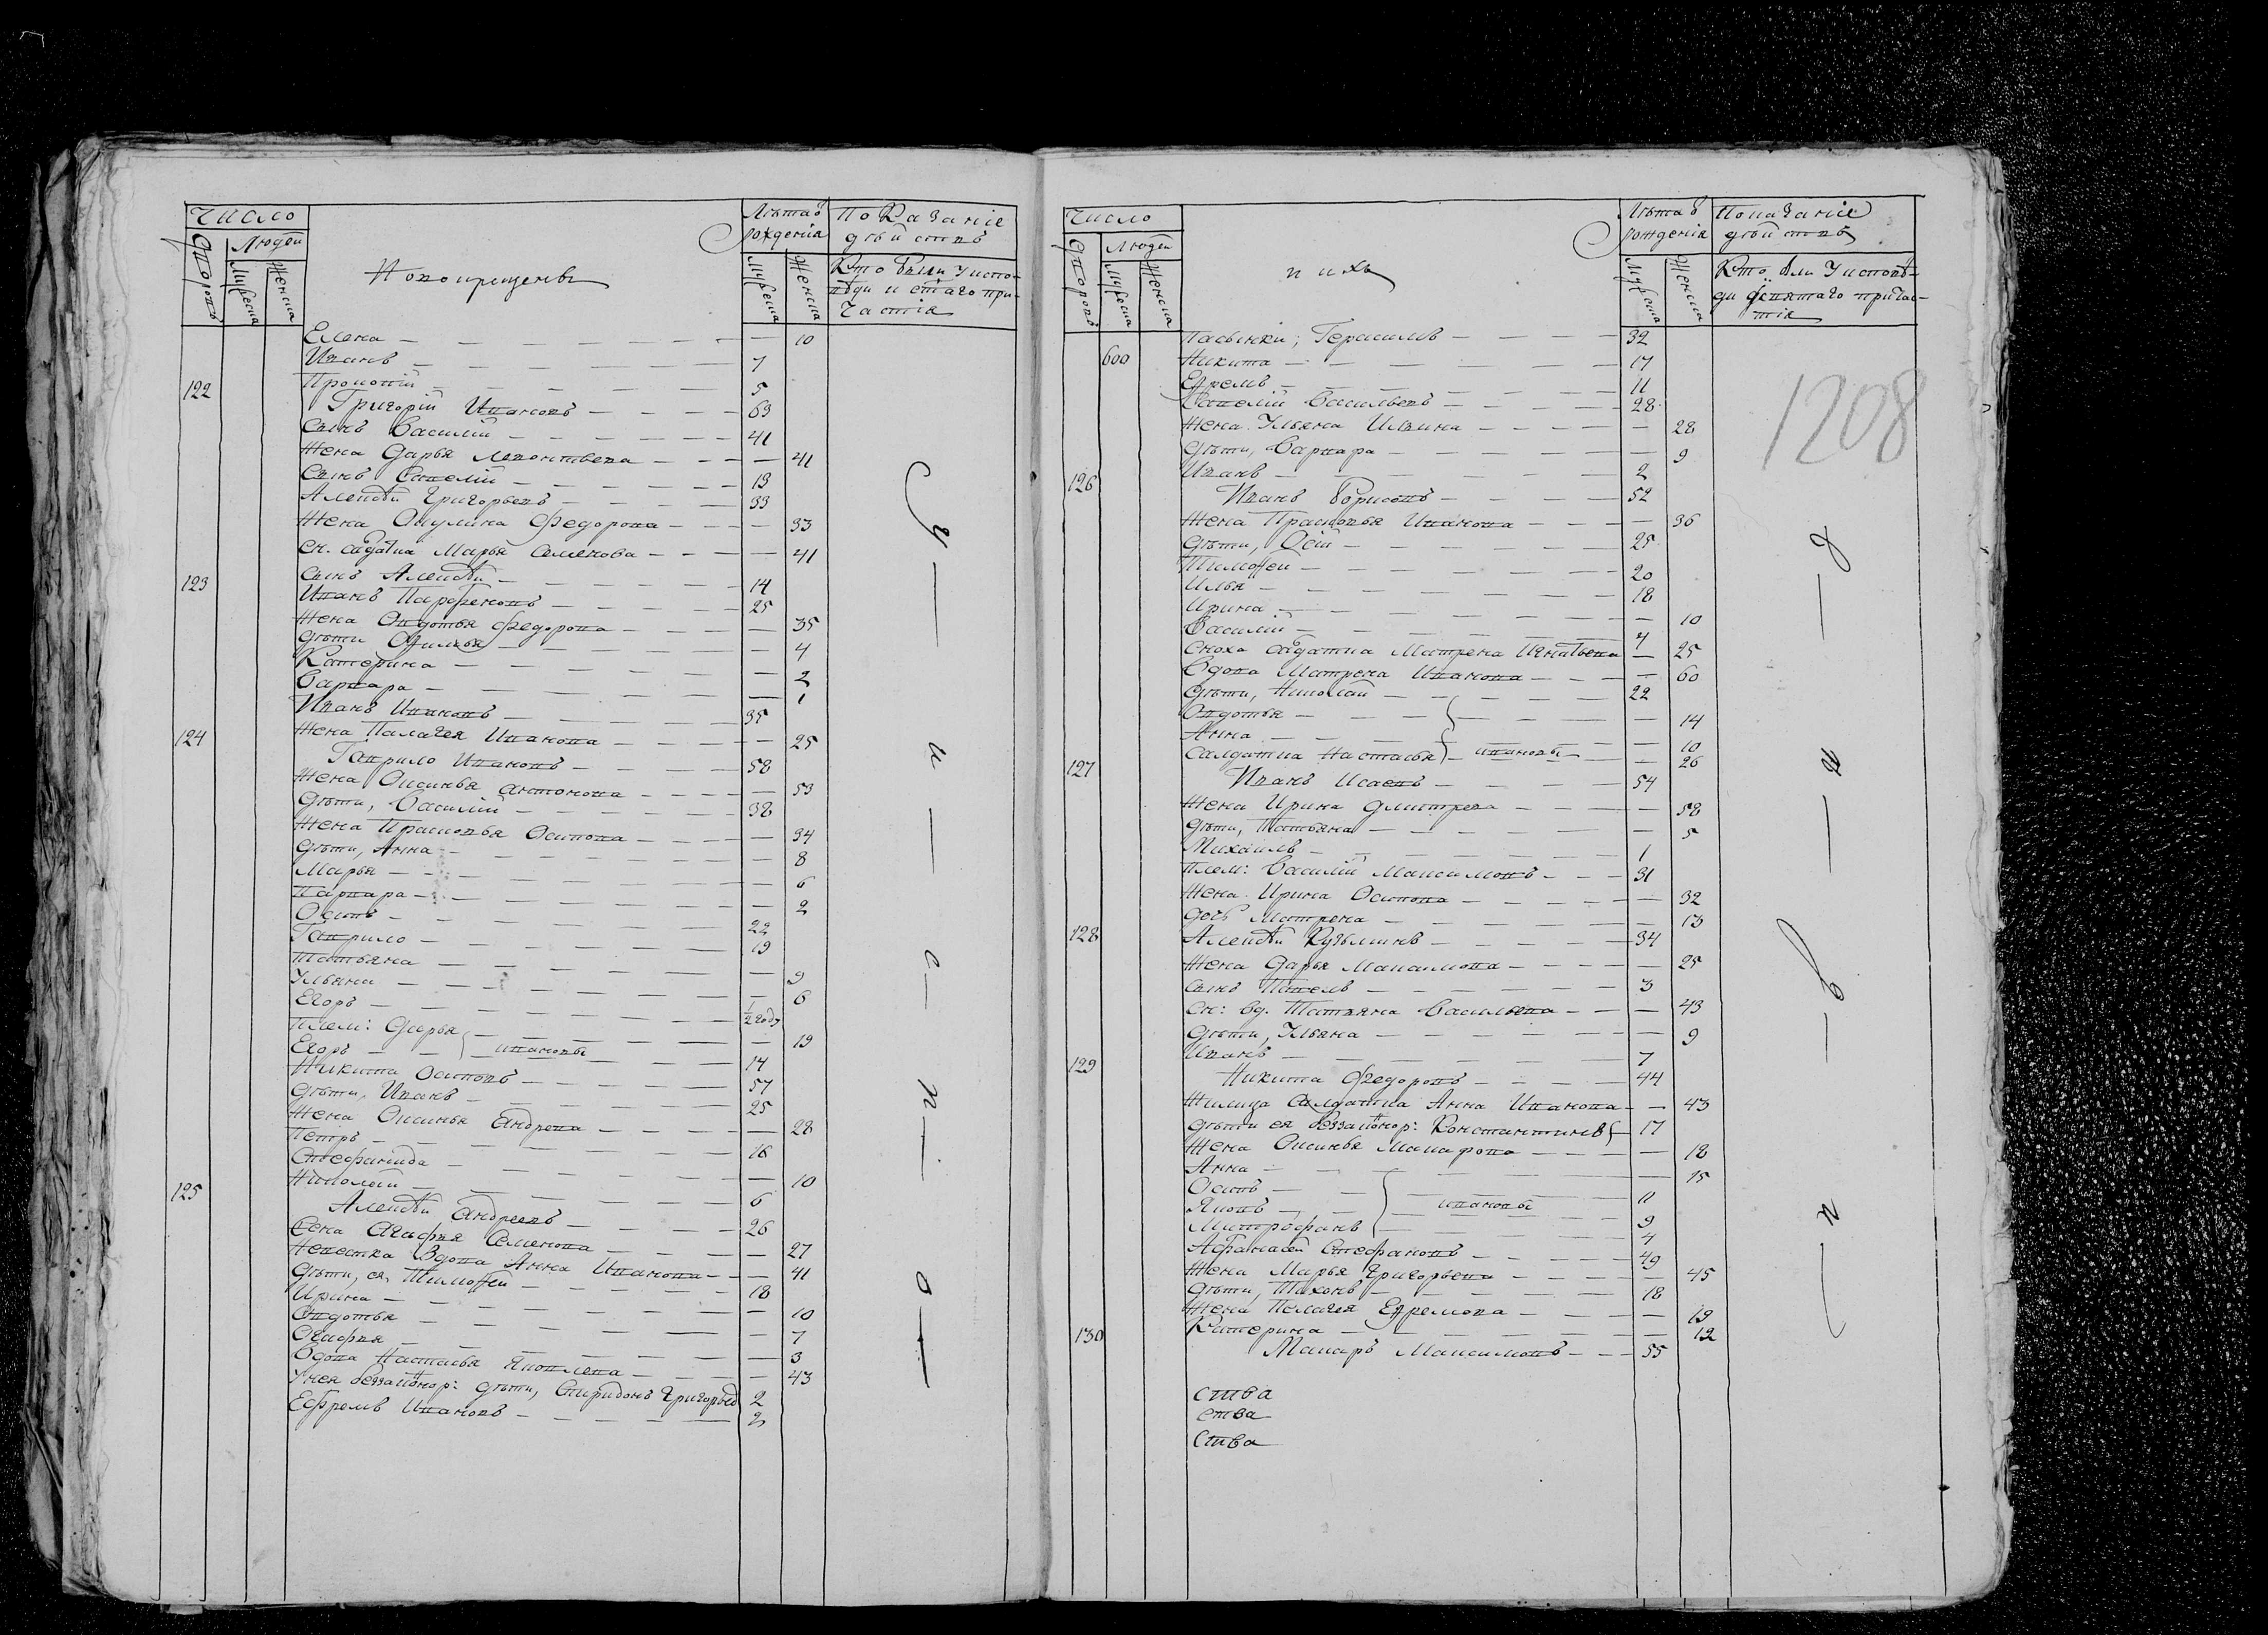 Число
Людей
Дворовъ
Мужеска
Женска
Новокрещены
Лѣта ѿ рожденія
Мужеска
Женска
Показаніе дѣйствъ
Кто были у испо-
вѣди и стаго при-
частія
Елена — 10
Иванъ — 7
Прокопій — 5
122 Григорій Ивановъ — 69
Сынъ Василій — 41
Жена Дарья Леонтьева — 41
Сынъ Савелій — 19
Алексѣй Григорьевъ — 33
Жена Окулина Федорова — 33
Сн. садатка Марья Семенова — 41
Сынъ Алексѣй — 14
123 Иванъ Парфеновъ — 25
Жена Овдотья Федорова — 35
Дѣти Офимья — 4
Катерина — 2
Варвара — 1
Иванъ Ивановъ — 35
Жена Палагея Иванова — 25
124 Гаврило Ивановъ — 58
Жена Оксинья Антонова — 53
Дѣти, Василій — 38
Жена Прасковья Осипова — 34
Дѣти, Анна — 8
Марья — 6
Варвара — 2
Осипъ — 22
Гаврило — 19
Татьяна — 9
Ульяна — 6
Егоръ — 1/2 году
Плем: Дарья — 19
Егоръ — ивановы 14
Никита Осиповъ — 57
Дѣти, Иванъ — 25
Жена Оксинья Андрева — 28
Петръ — 16
Стефанида — 10
Николай — 6
125 Алексѣй Андреевъ — 26
Жена Агафия Семенова — 27
Невестка Вдова Анна Иванова — 41
Дѣти, ея Тимоѳей — 18
Ирина — 10
Овдотья — 7
Огафия — 3
Вдова Настасья Яковлева — 43
У нея беззаконор: дѣти, Спиридонъ Григорьев 2
Ефремъ Ивановъ — 2
У — и — с — п — о —
Число
Людей
Дворовъ
Мужеска
Женска
ихъ
Лѣта ѿ рожденія
Мужеска
Женска
Показаніе дѣйствъ
Кто были у исповѣ-
ди и святаго прича-
тія
1208
Пасынки; Герасимъ — 32
600 Никита — 17
Ефремъ — 11
Савелій Васильевъ — 28
Жена Ульяна Ильина — 28
Дѣти, Варвара — 9
Иванъ — 2
126 Иванъ Борисовъ — 52
Жена Прасковья Иванова — 36
Дѣти, Осій — 25
Тимоѳей — 20
Илья — 18
Ирина — 10
Василій — 4
Сноха садатка Матрена Игнатьева — 25
Вдова Матрена Иванова — 60
Дѣти, Николай — 22
Овдотья — 14
Анна — 10
Салдатка Настасья — ивановы — 26
127 Иванъ Исаевъ — 54
Жена Ирина Дмитрева — 58
Дѣти, Татьяна — 5
Михаилъ — 1
Плем: Василій Максимовъ — 31
Жена Ирина Осипова — 32
Дочь Матрена — 13
128 Алексѣй Кузьминъ — 34
Жена Дарья Максимова — 25
Сынъ Павелъ — 3
Сн: вд. Татияна Васильева — 43
Дѣти, Ульяна — 9
Иванъ — 7
129 Никита Федоровъ — 44
Жилица Салдатка Анна Иванова — 43
Дѣти ея беззаконор: Константинъ — 17
Жена Оксинья Макарова — 18
Анна — 15
Осипъ — 11
Яковъ — ивановы 9
Митрофанъ — 4
Афанасей Стефановъ — 49
Жена Марья Григорьева — 45
Дѣти, Тихонъ — 18
Жена Пелагея Ефремова — 19
Катерина — 12
130 Макаръ Максимовъ — 55
ства
ства
ства